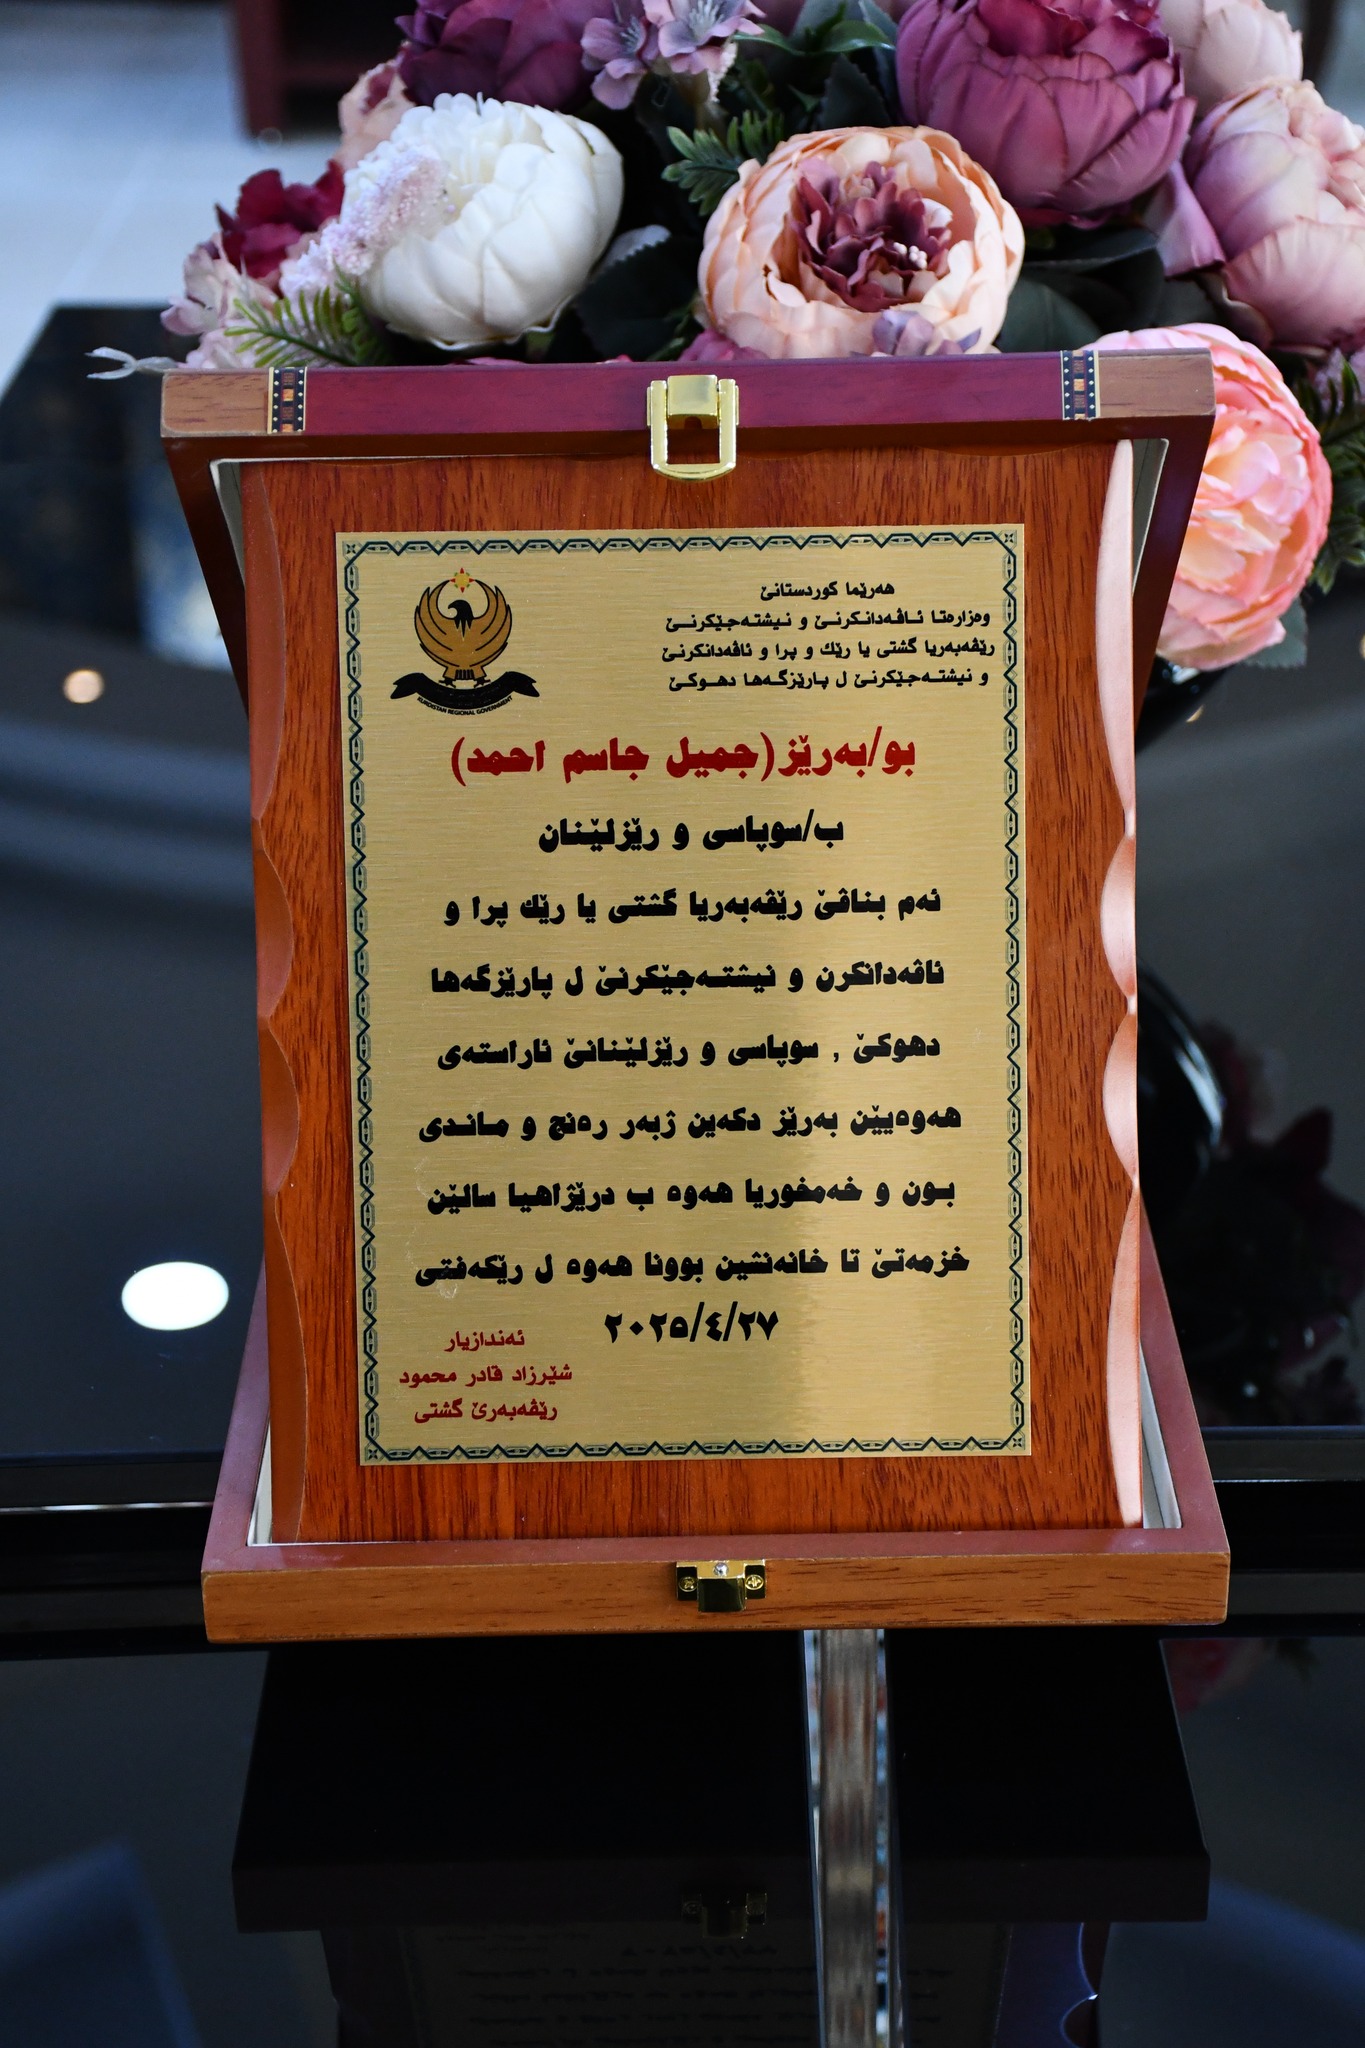 هەرێما كوردستانێ
وەزارەتا ئاڤەدانكرنێ و نیشتەجێكرنێ
رێڤەبەریا گشتی یا رێك و پرا و ئاڤەدانكرنێ
و نیشتەجێكرنێ ل پارێزگەها دهوكێ
KURDISTAN REGIONAL GOVERNMENT
بو/بەرێز(جمیل جاسم احمد)
ب/سوپاسی و رێزلێنان
ئەم بناڤێ رێڤەبەریا گشتی یا رێك پرا و
ئاڤەدانكرن و نیشتەجێكرنێ ل پارێزگەها
دهوكێ , سوپاسی و رێزلێنانێ ئاراستەی
هەوەیێن بەرێز دكەین ژبەر رەنج و ماندی
بون و خەمخوریا هەوە ب درێژاهیا سالێن
خزمەتێ تا خانەنشین بوونا هەوە ل رێكەفتی
٢٠٢٥/٤/٢٧
ئەندازیار
شێرزاد قادر محمود
رێڤەبەرێ گشتی